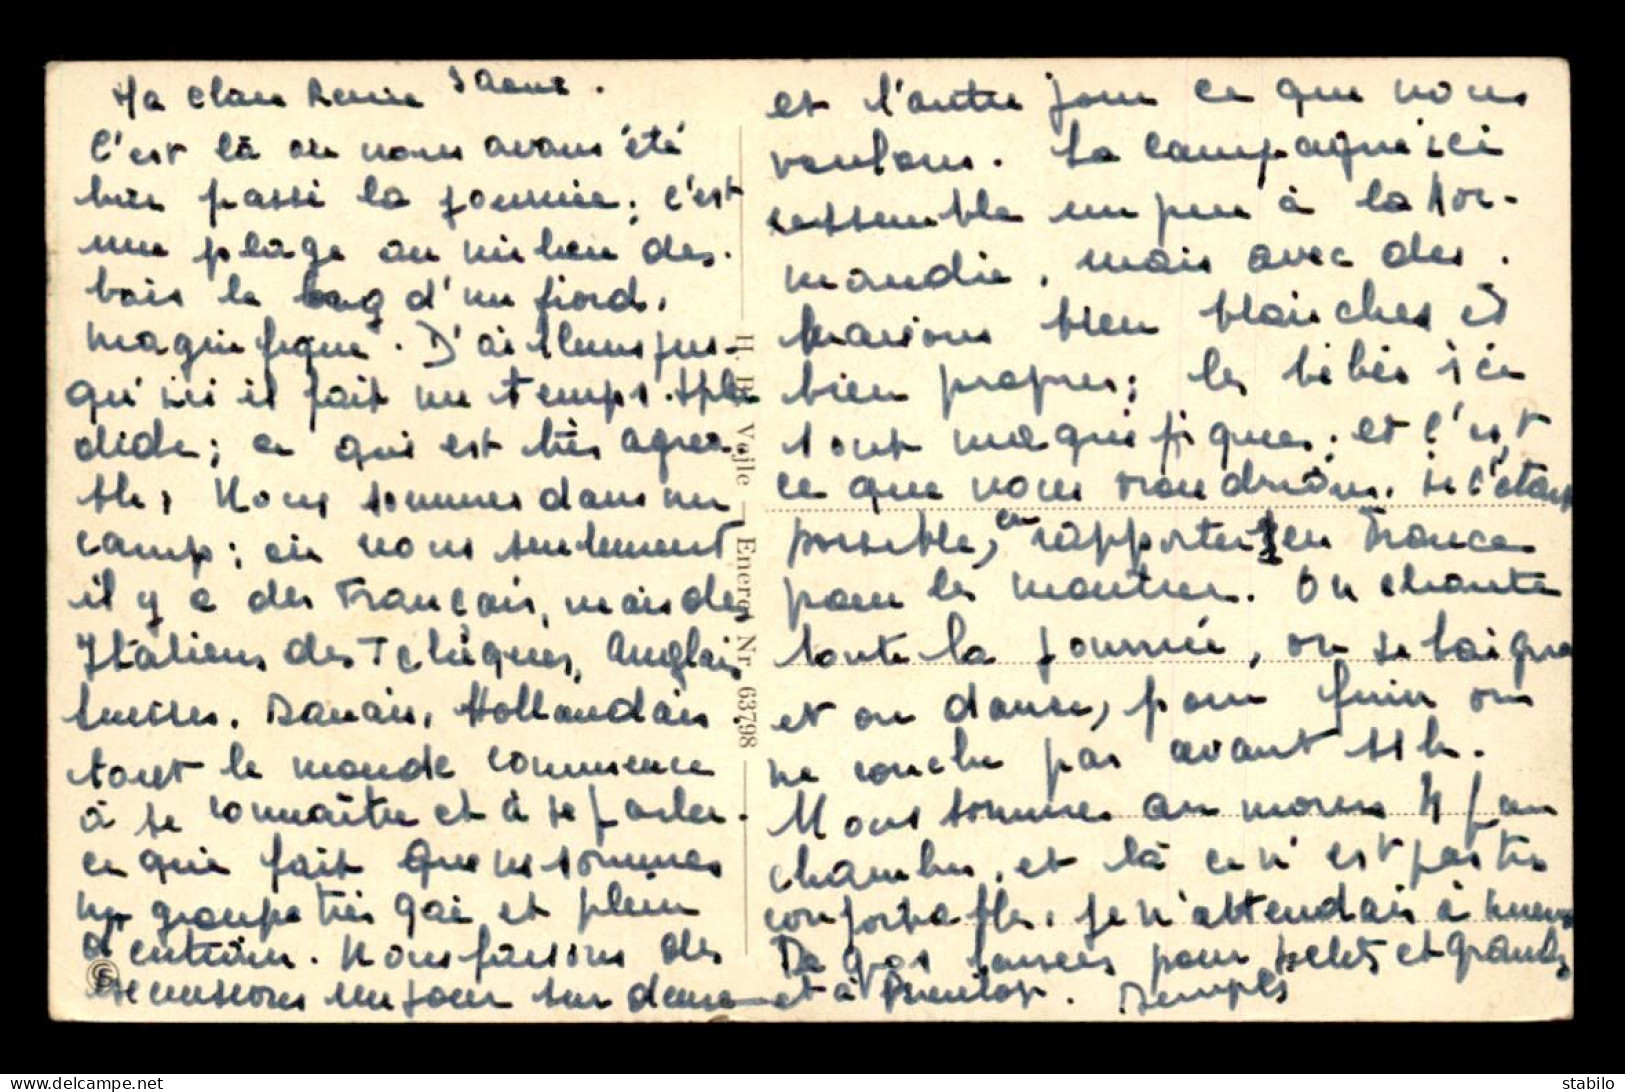 Ma chère
C'est là où nous avons été
bien passé la journée; c'est
une plage au milieu des
bois le long d'un fiord,
magnifique. D'ailleurs jus-
qu'ici il fait un temps splen
dide; ce qui est très agréa
ble, Nous sommes dans un
camp; où non seulement
il y a des Français, mais des
Italiens des Tchèques, Anglais
Suisses. Danais, Hollandais
tout le monde commence
à se connaître et à se parler.
ce qui fait que ns sommes
un groupe très gai et plein
d'entrain. Nous faisons des
excursions un jour sur deux
et l'autre jour ce que nous
voulons. La campagne ici
ressemble un peu à la Nor-
mandie, mais avec des
maisons bien blanches et
bien propres; les bébés ici
sont magnifiques; et c'est
ce que nous voudrions, si c'était
possible, en rapporter 1 en France
pour les montrer. On chante
toute la journée, on se baigne
et on danse, pour finir on
ne couche pas avant 11 h.
Nous sommes au moins 4 par
chambre, et là ce n'est pas très
confortable, je m'attendais à mieux
De gros baisers pour petits et grands
et à bientôt.
H. B. Vejle — Eneret Nr. 63798
stabilo